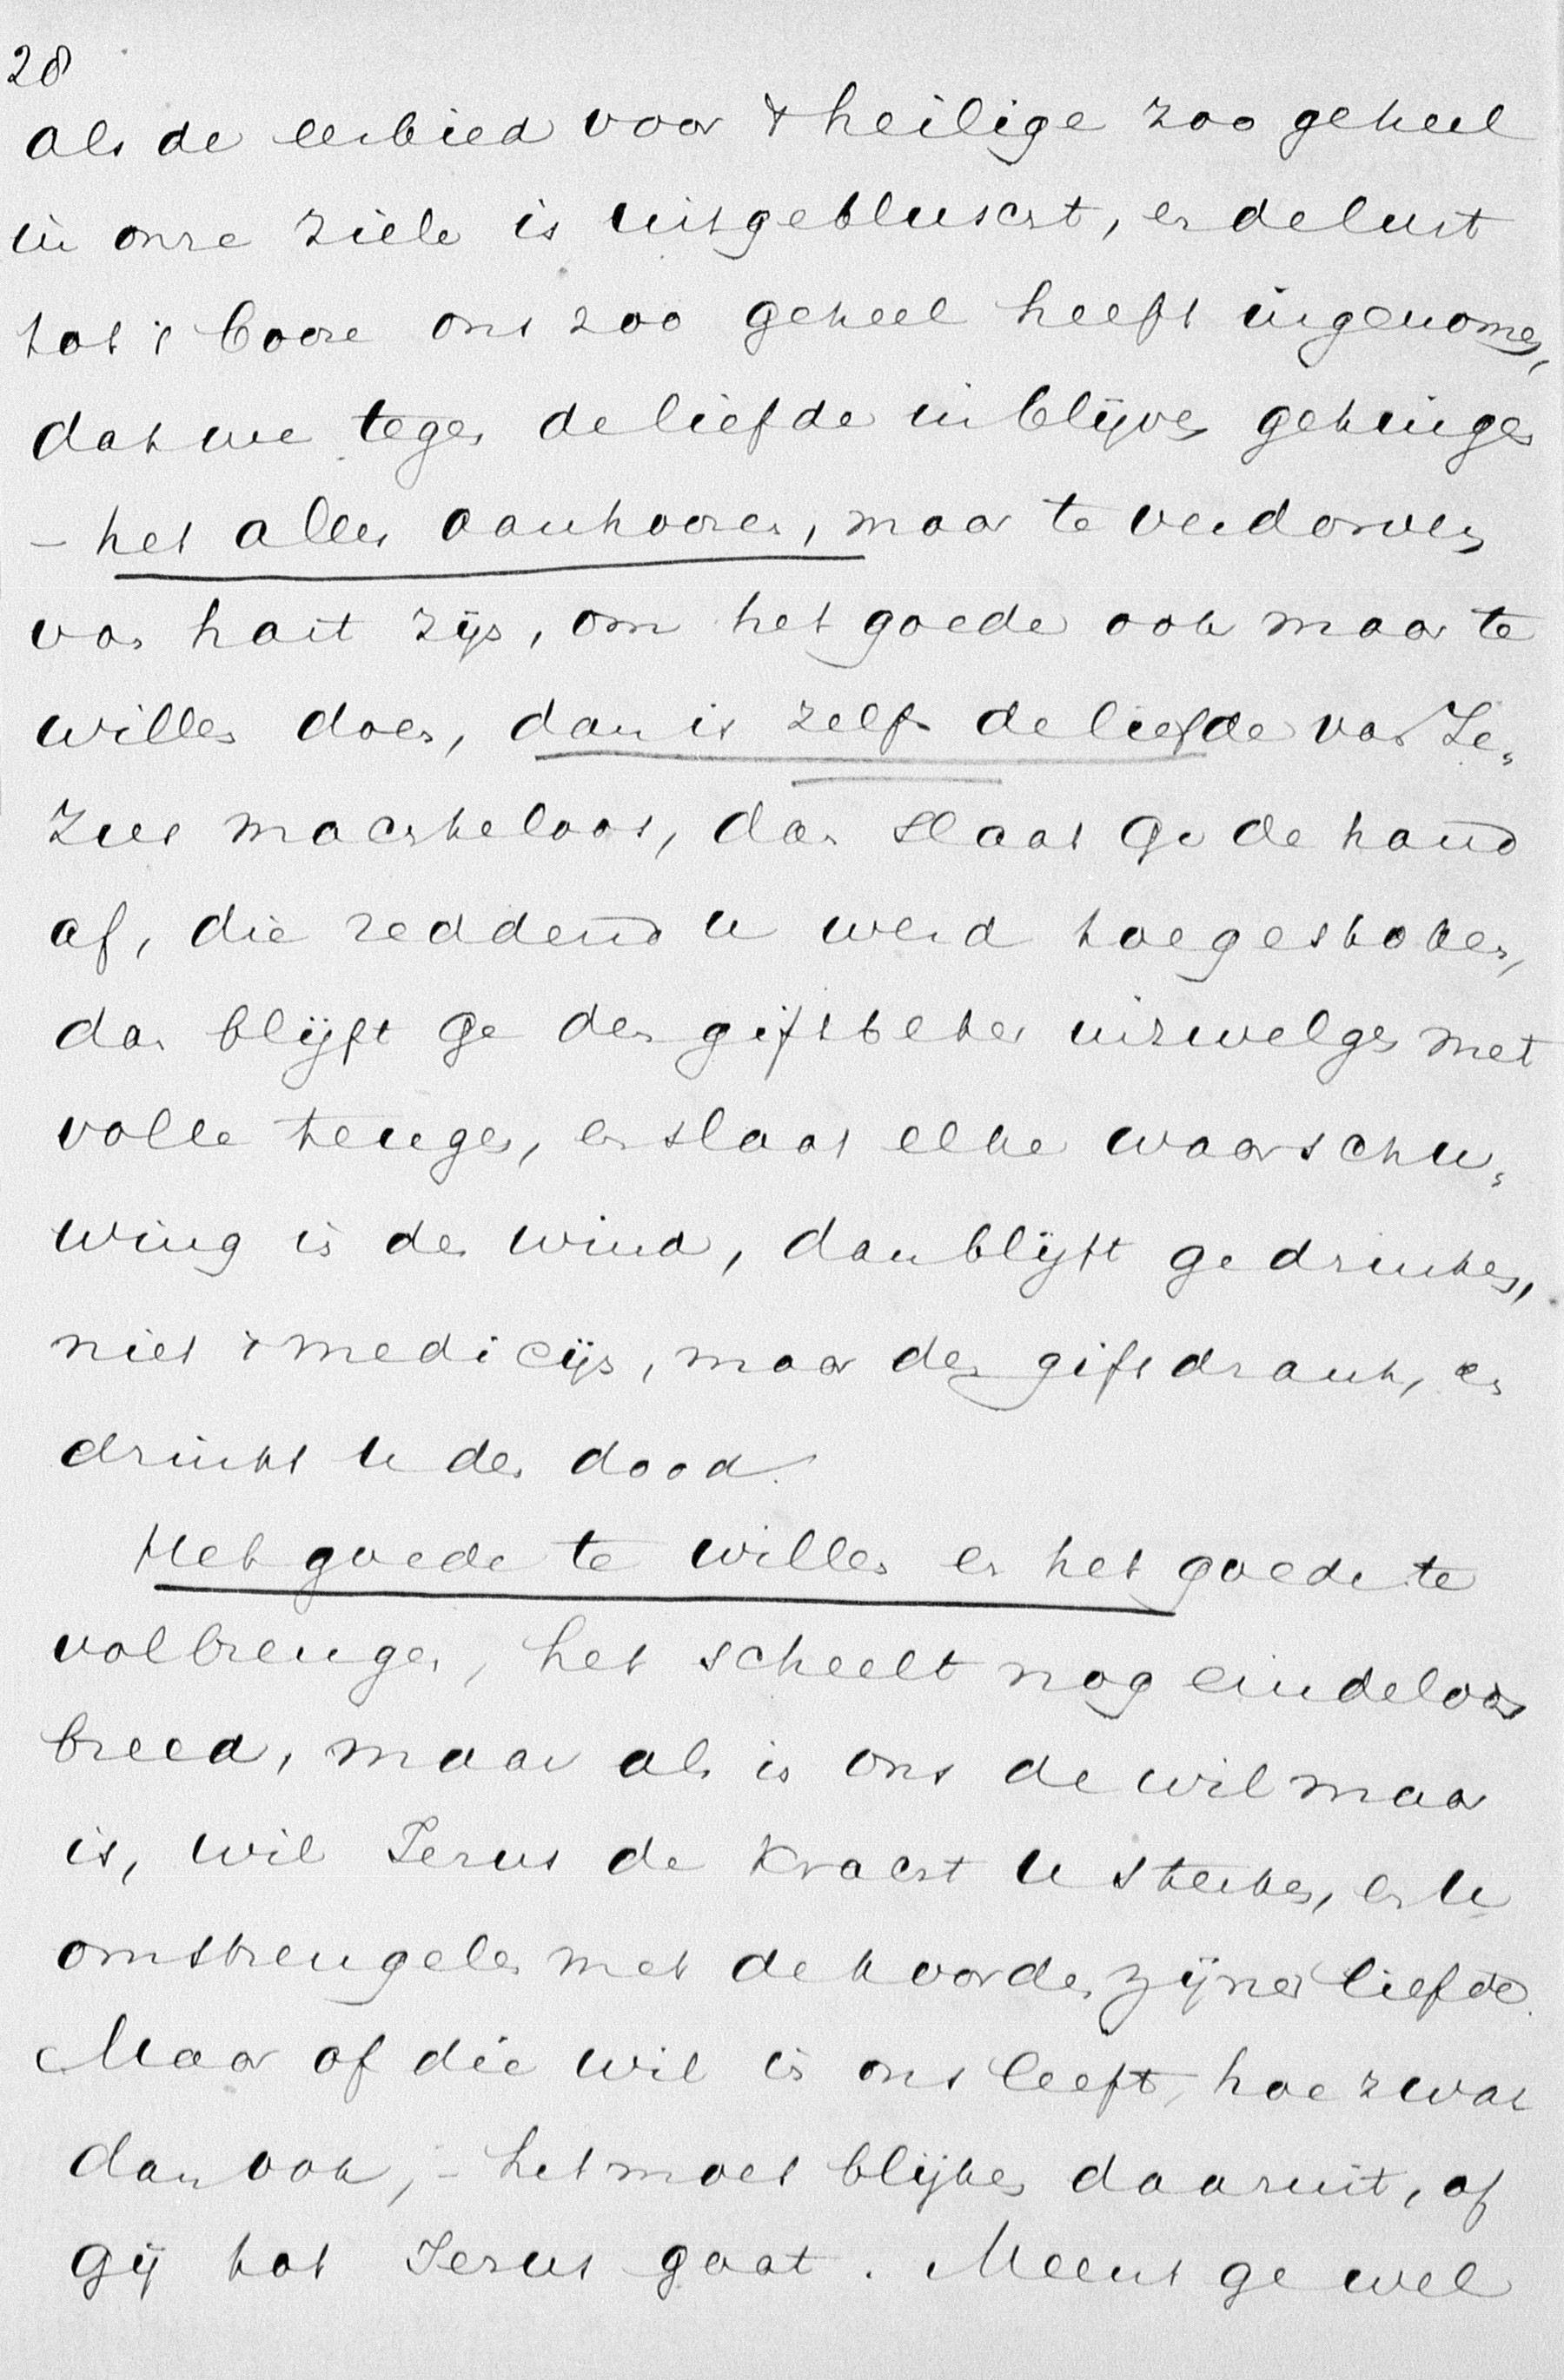 28
als de eerbied voor 't heilige zoo geheel
in onze ziele is uitgebluscht, en de lust
tot 't booze ons zoo geheel heeft ingenomen,
dat we tegen de liefde in blijven getuigen
– het alles aanhooren, maar te verdorven
van hart zijn, om het goede ook maar te
willen doen, dan is zelfs de liefde van Je„
zus machteloos, dan slaat ge de hand
af, die reddend u werd toegestoken,
dan blijft ge den giftbeker inzwelgen met
volle teugen, en slaat elke waarschu„
wing in den wind, dan blijft ge drinken,
niet 't medicijn, maar den giftdrank, en
drinkt u den dood.
Het goede te willen en het goede te
volbrengen, het scheelt nog eindeloos
breed, maar als in ons de wil maar
is, wil Jezus de kracht u sterken, en u
omstrengelen met de koorden zijner liefde.
Maar of die wil in ons leeft, hoe zwak
dan ook, – het moet blijken daaruit, of
gij tot Jezus gaat. Meent ge wel